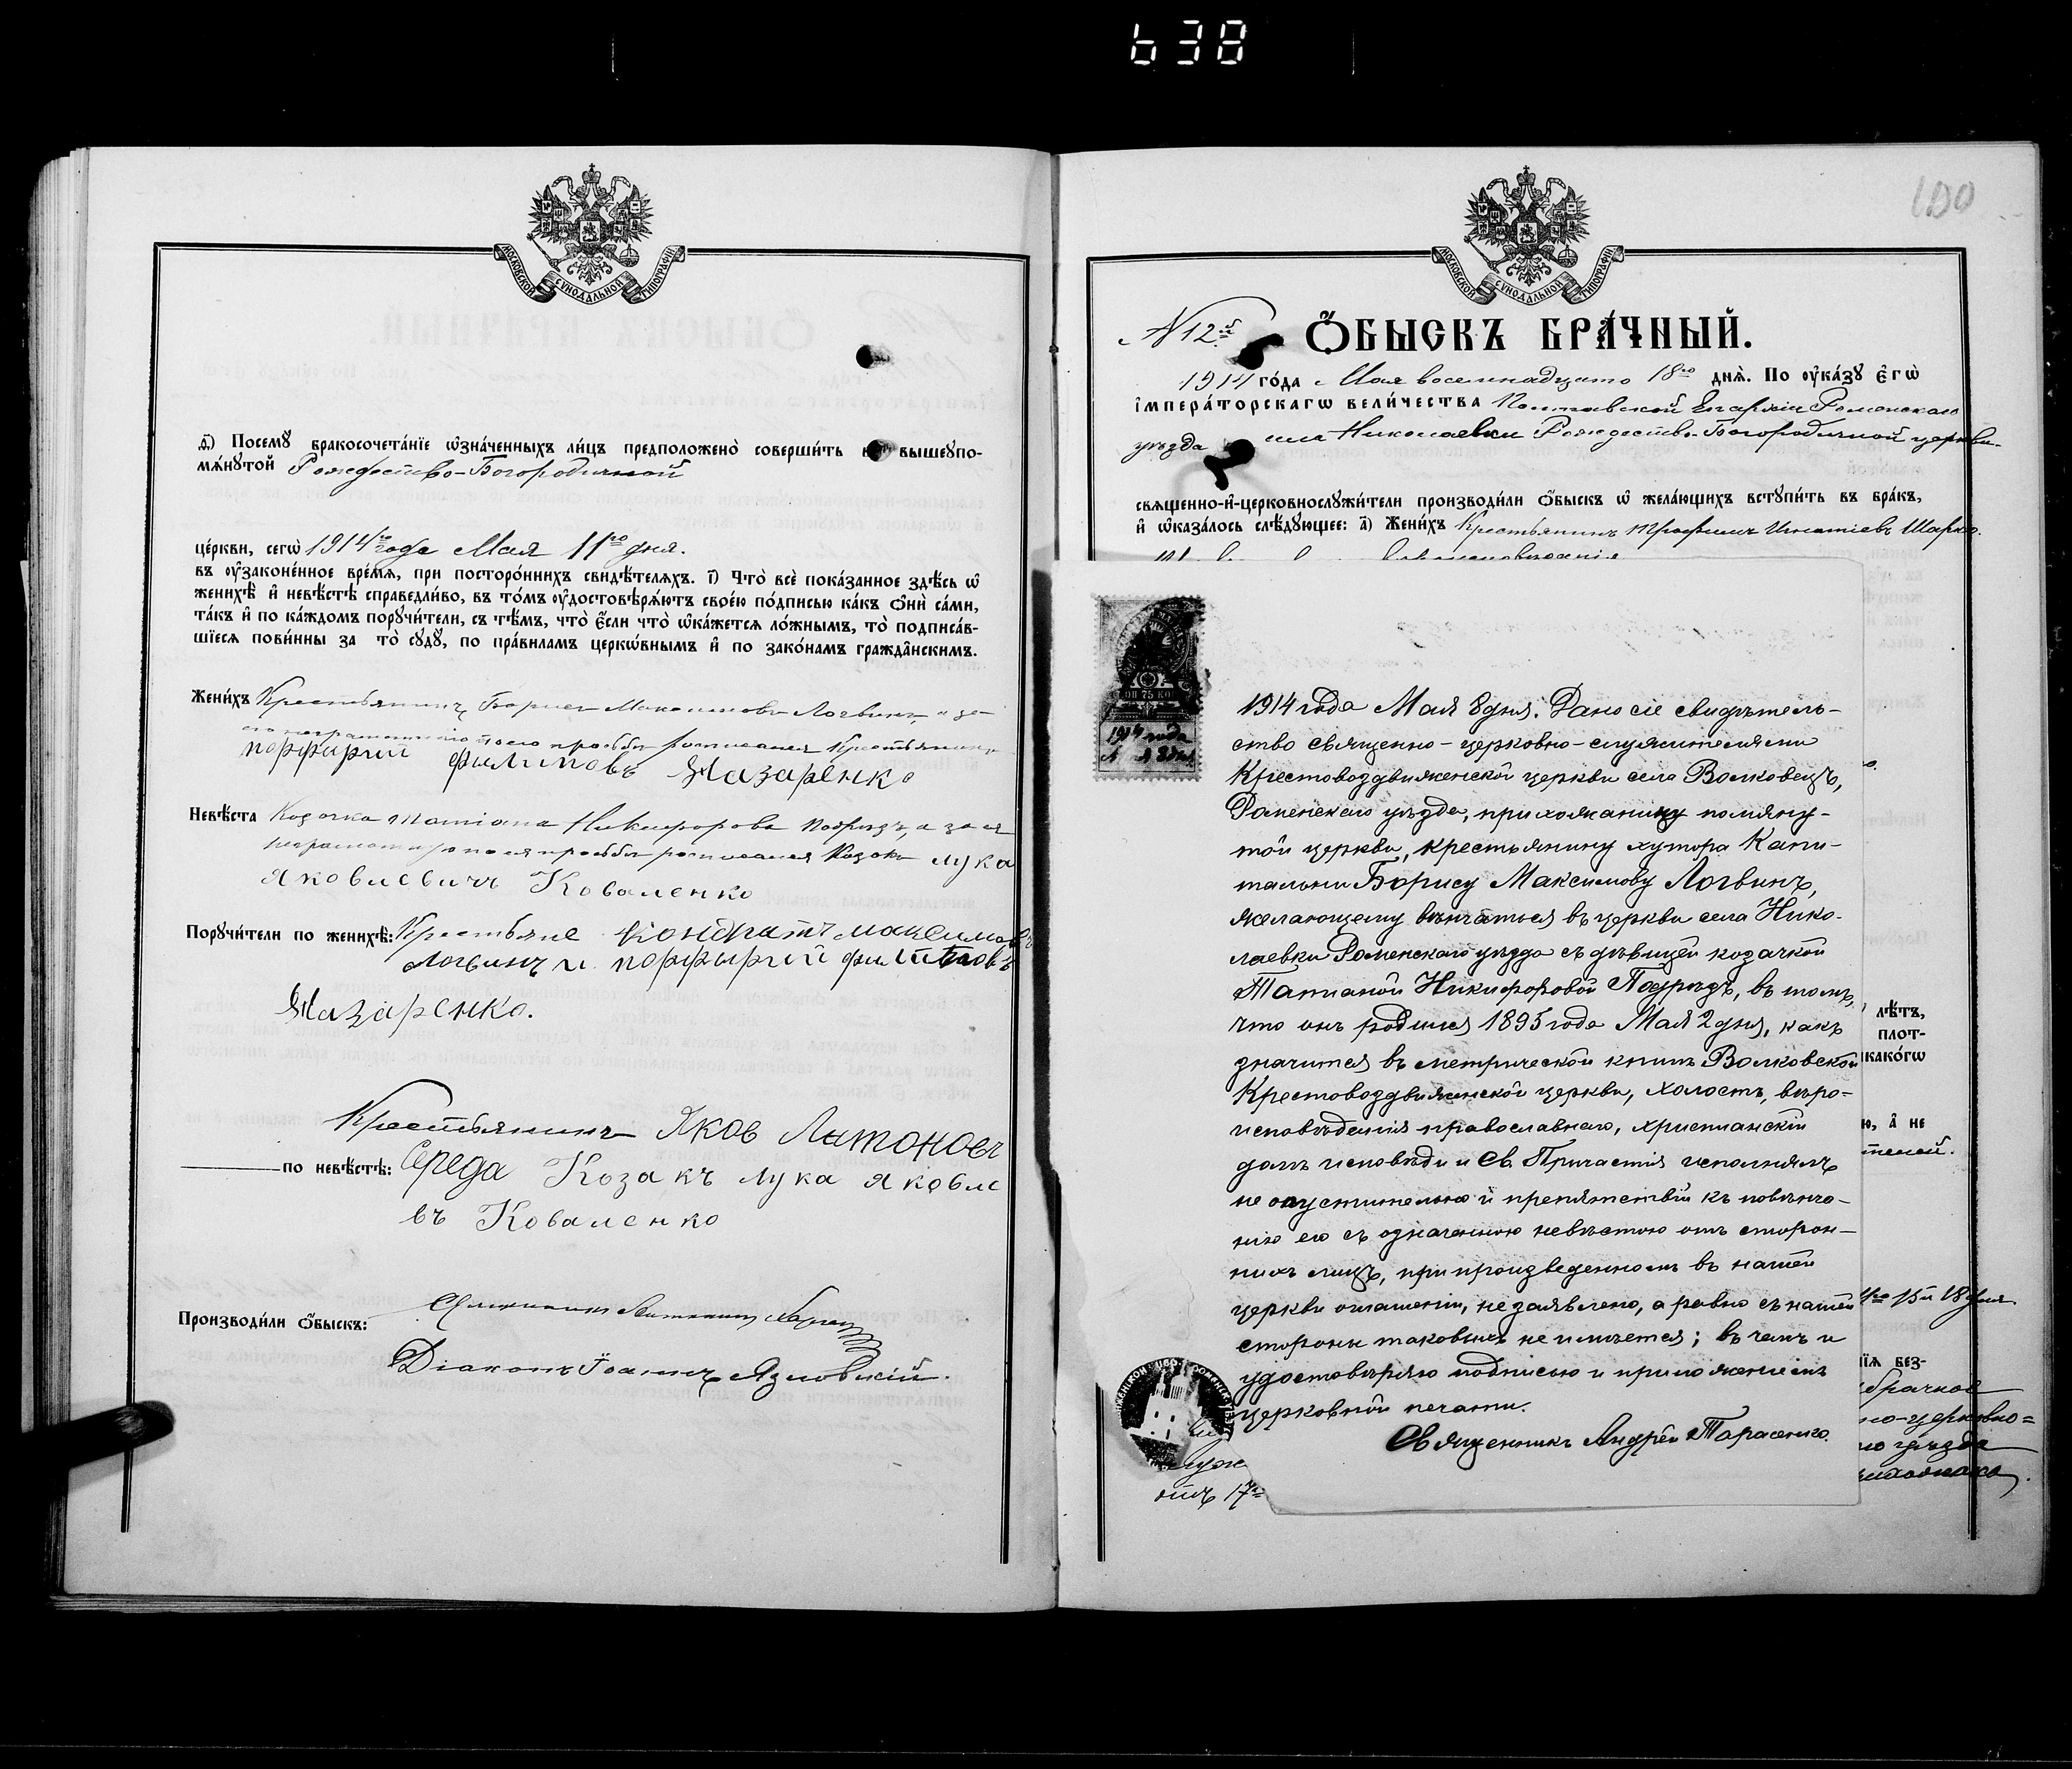 638
МОСКОВСКОЙ СУНОДАЛЬНОЙ ТИПОГРАФІИ
д҃і) Посемꙋ бракосочета́нїе ѡ҆зна́ченныхъ ли́цъ предположено̀ соверши́ть въ вышеꙋпо-
мѧ́нꙋтой Рождество-Богородичной
це́ркви, сегѡ̀ 1914го года Мая 11го дня.
въ ᲂу҆законе́нное вре́мѧ, при посторо́ннихъ свидѣ́телѧхъ. і҃) Что̀ всѐ пока́занное здѣ́сь ѡ҆
женихѣ̀ и҆ невѣ́стѣ справедли́во, въ то́мъ ᲂу҆достовѣрѧ́ютъ свое́ю по́дписью ка́къ ѻ҆нѝ са́ми,
та́къ и҆ по ка́ждомъ порꙋчи́тели, съ тѣ́мъ, что̀ є҆́сли что̀ ѡ҆ка́жетсѧ ло́жнымъ, то̀ подписа́в-
шїесѧ пови́нны за то̀ сꙋдꙋ̀, по пра́виламъ церкѡ́внымъ и҆ по зако́намъ гражда́нскимъ.
Жени́хъ Крестьянинъ Борисъ Максимовъ Логвинъ, а за
его неграмотнаго по его просьбѣ росписался Крестьянинъ
порфирий филиповъ Назаренко
Невѣ́ста Козачка Татіана Никифорова Подрѣзъ, а за ея
неграмотную по ея просьбѣ росписался Козакъ лука
яковлевичъ Коваленко
Порꙋчи́тели по женихѣ̀: Крестьяне кондратъ максимовъ
Логвинъ и порфырий филиповъ
Назаренко.
Крестьянинъ Яков Антоновъ
по невѣ́стѣ: Середа Козакъ лука яковле
въ Коваленко
Производи́ли ѻ҆́быскъ: Священникъ
Діаконъ Іоаннъ Язловскій.
100
МОСКОВСКОЙ СУНОДАЛЬНОЙ ТИПОГРАФІИ
N 12й
Ѻ҆́БЫСКЪ БРА́ЧНЫЙ.
1914 го́да Мая восемнадцато 18го днѧ̀. По ᲂу҆ка́зꙋ є҆гѡ̀
і҆мпера́торскагѡ вели́чества Полтавской Епархіи Роменскаго
уѣзда села Николаевки Рождество-Богородичной церкви
свѧщенно-и҆-церковнослꙋжи́тели производи́ли ѻ҆́быскъ ѡ҆ жела́ющихъ встꙋпи́ть въ бра́къ,
и҆ ѡ҆каза́лось слѣ́дꙋющее: а҃) Жени́хъ Крестьянинъ Трофимъ Игнатіевъ Шарко.
75 КОП
1914 года
Мая 8 дня
1914 года Мая 8 дня. Дано сіе свидѣтель-
ство священно-церковно-служителями
Крестовоздвиженской церкви села Волковецъ,
Роменскаго уѣзда, прихожанину помяну-
той церкви, крестьянину хутора Капи-
тальни Борису Максимову Логвинъ,
желающему вѣнчаться въ церкви села Нико-
лаевки Роменскаго уѣзда съ дѣвицей козачкой
Татіаной Никифоровой Подрѣзъ, въ томъ,
что онъ родился 1895 года Мая 2 дня, какъ
значится въ метрической книгѣ Волковской
Крестовоздвиженской церкви, холостъ, вѣро-
исповѣданія православнаго, христіанскій
долгъ исповѣди и Св. Причастія исполнялъ
не опустительно и препятствій къ повѣнча-
нію его съ означенною невѣстою отъ сторон-
нихъ лицъ, при произведенномъ въ нашей
церкви оглашеніи, не заявлено, а равно съ нашей
стороны таковыхъ не имѣется; въ чемъ и
удостовѣряю подписью и приложеніемъ
церковной печати.
Священникъ Андрей Тарасенко.
лѣ́тъ,
плот-
какогѡ
ю, а҆ не
телей.
15 и 18 дня
їѧ без-
брачное
но-церковно=
го уѣзда
отъ 17го